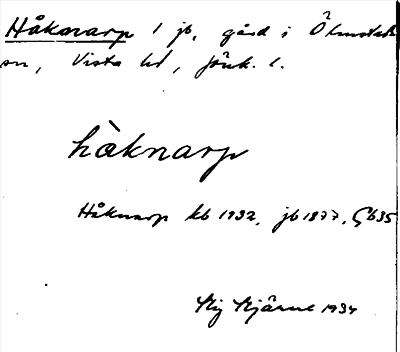 Håknarp 1 jb, gård i Ölmstads
sn, Vista hd, Jönk. l.
hàknarp
Håknarp kb 1932, jb 1877, Gb 35
Stig Stjärne 1934